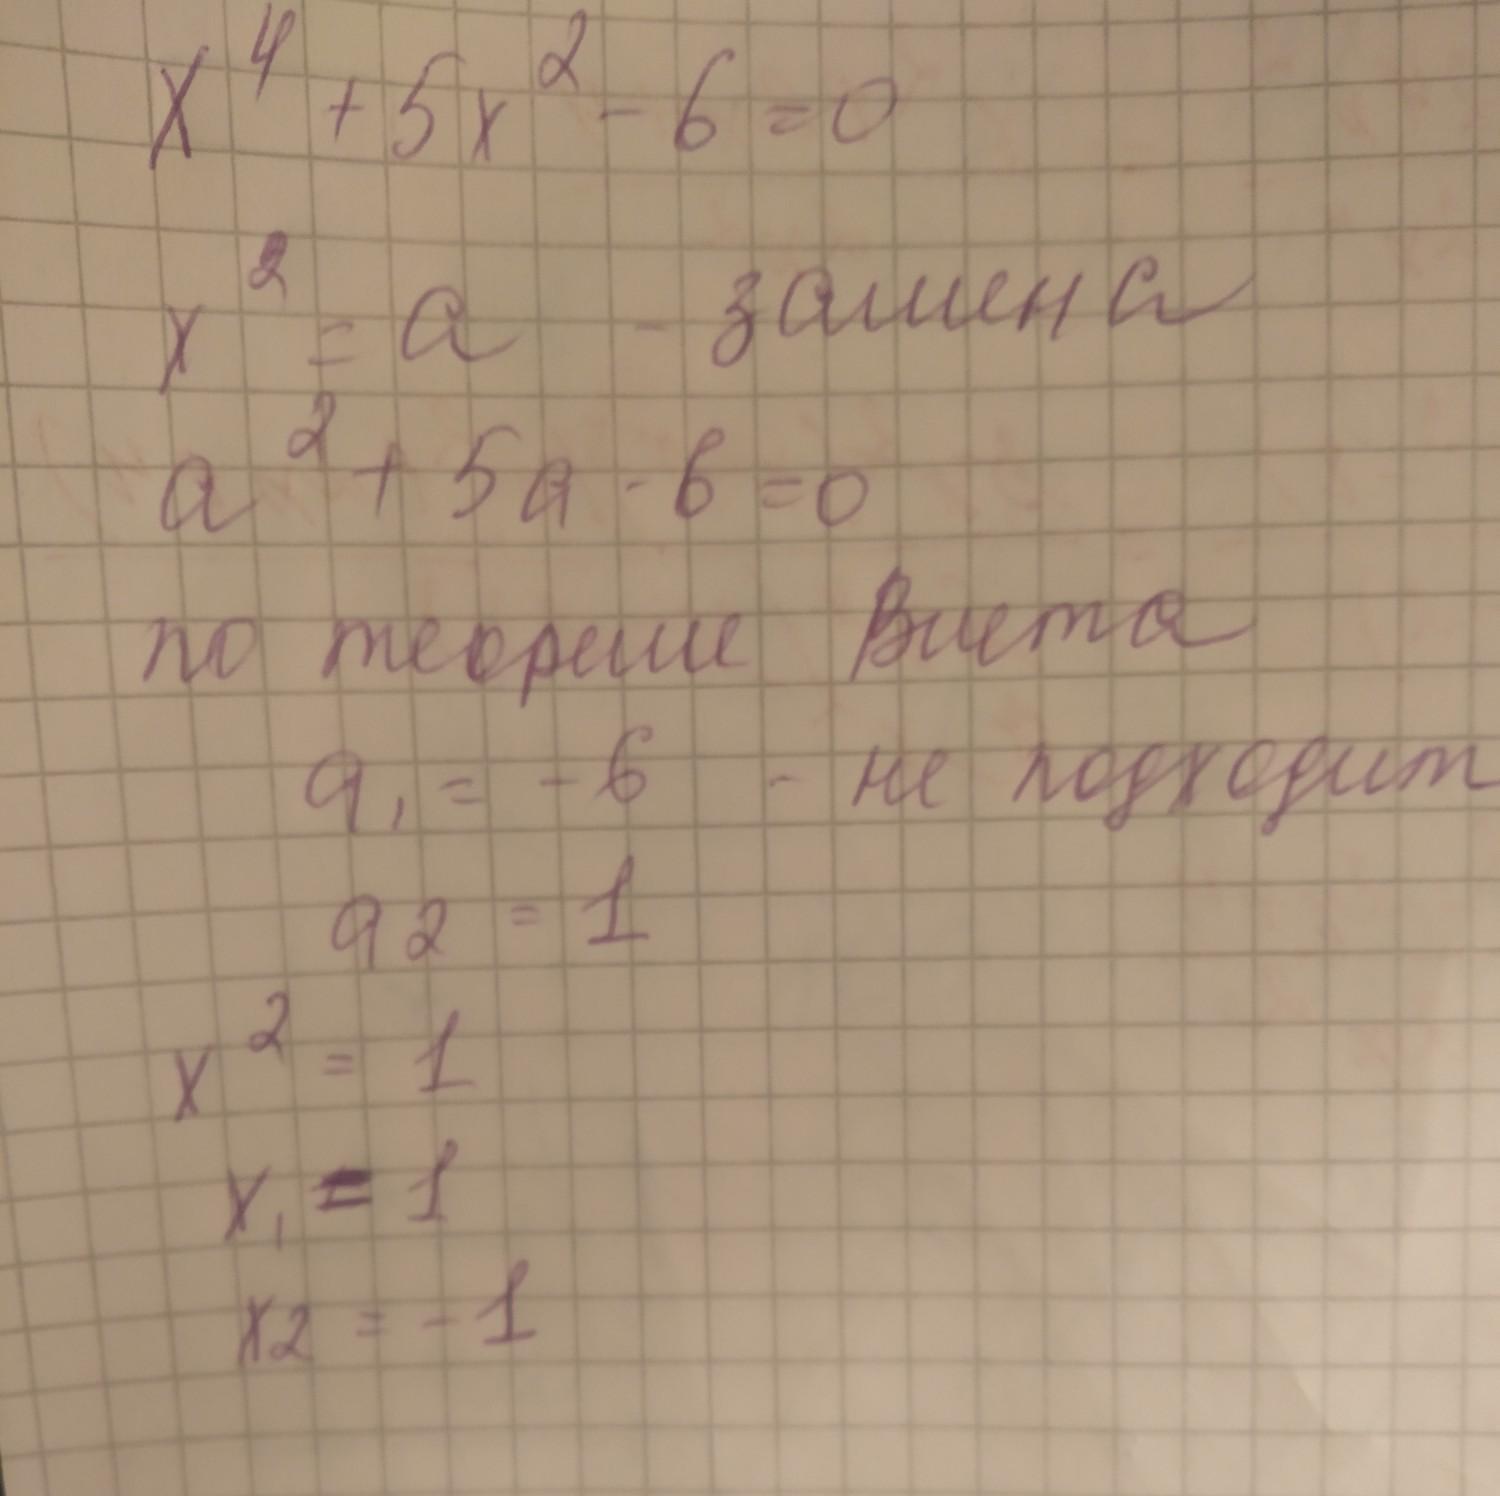 x⁴ + 5x² - 6 = 0
x² = a - замена
a² + 5a - 6 = 0
по теореме Виета
a₁ = -6 - не подходит
a₂ = 1
x² = 1
x₁ = 1
x₂ = -1